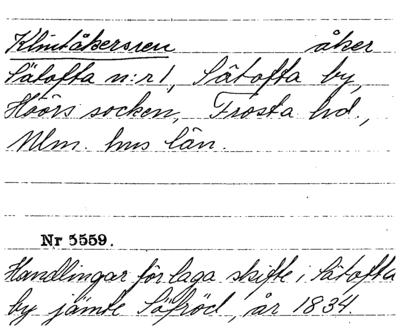 Klintåkersren åker
Sätofta n:r 1, Sätofta by,
Höörs socken, Frosta hd.,
Mlm. hus län.
Nr 5559.
Handlingar för laga skifte i Sätofta
by jämte Säfröd, år 1834.